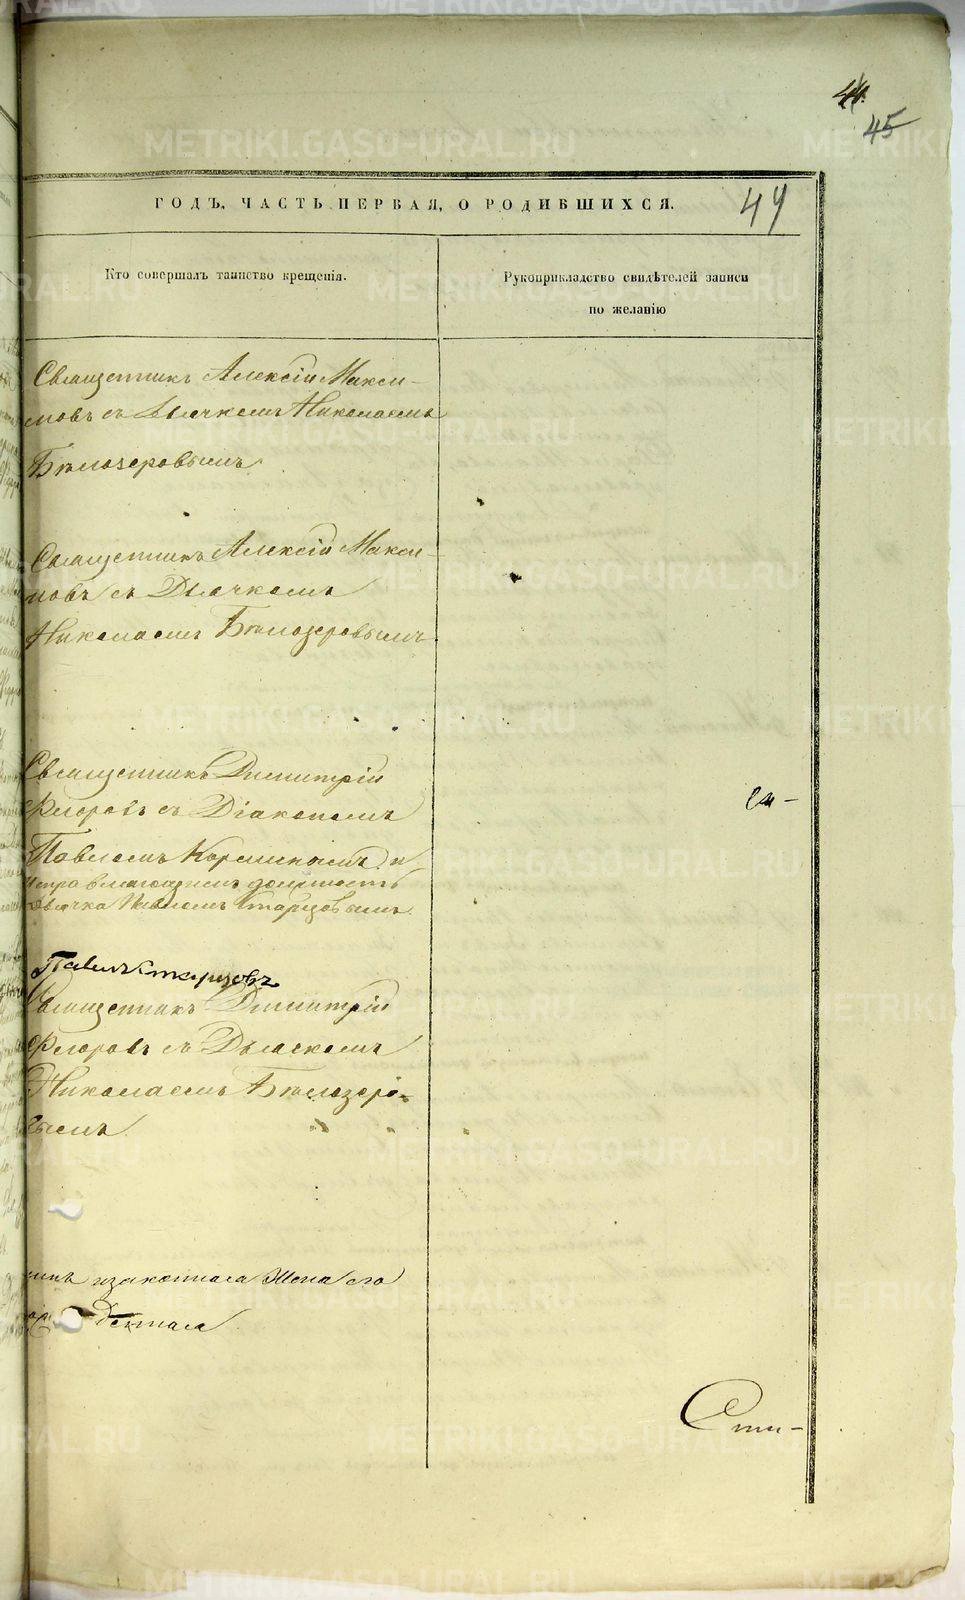 44.
45
ГОДЪ, ЧАСТЬ ПЕРВАЯ, О РОДИВШИХСЯ.
44
Кто совершалъ таинство крещенія.
Рукоприкладство свидѣтелей записи
по желанію
Священникъ Алексій Макси-
мовъ съ Дьячкомъ Николаемъ
Бѣлозеровымъ.
Священникъ Алексій Макси-
мовъ съ Дьячкомъ
Николаемъ Бѣлозеровымъ
Священникъ Димитрій
Флоровъ съ Діакономъ
Павломъ и
Исправляющимъ должность
Дьячка Павломъ Старцовымъ.
Павелъ Старцовъ
Священникъ Димитрій
Флоровъ съ Дьячкомъ
Николаемъ Бѣлозеро-
вымъ.
и законная Жена его
METRIKI.GASO-URAL.RU